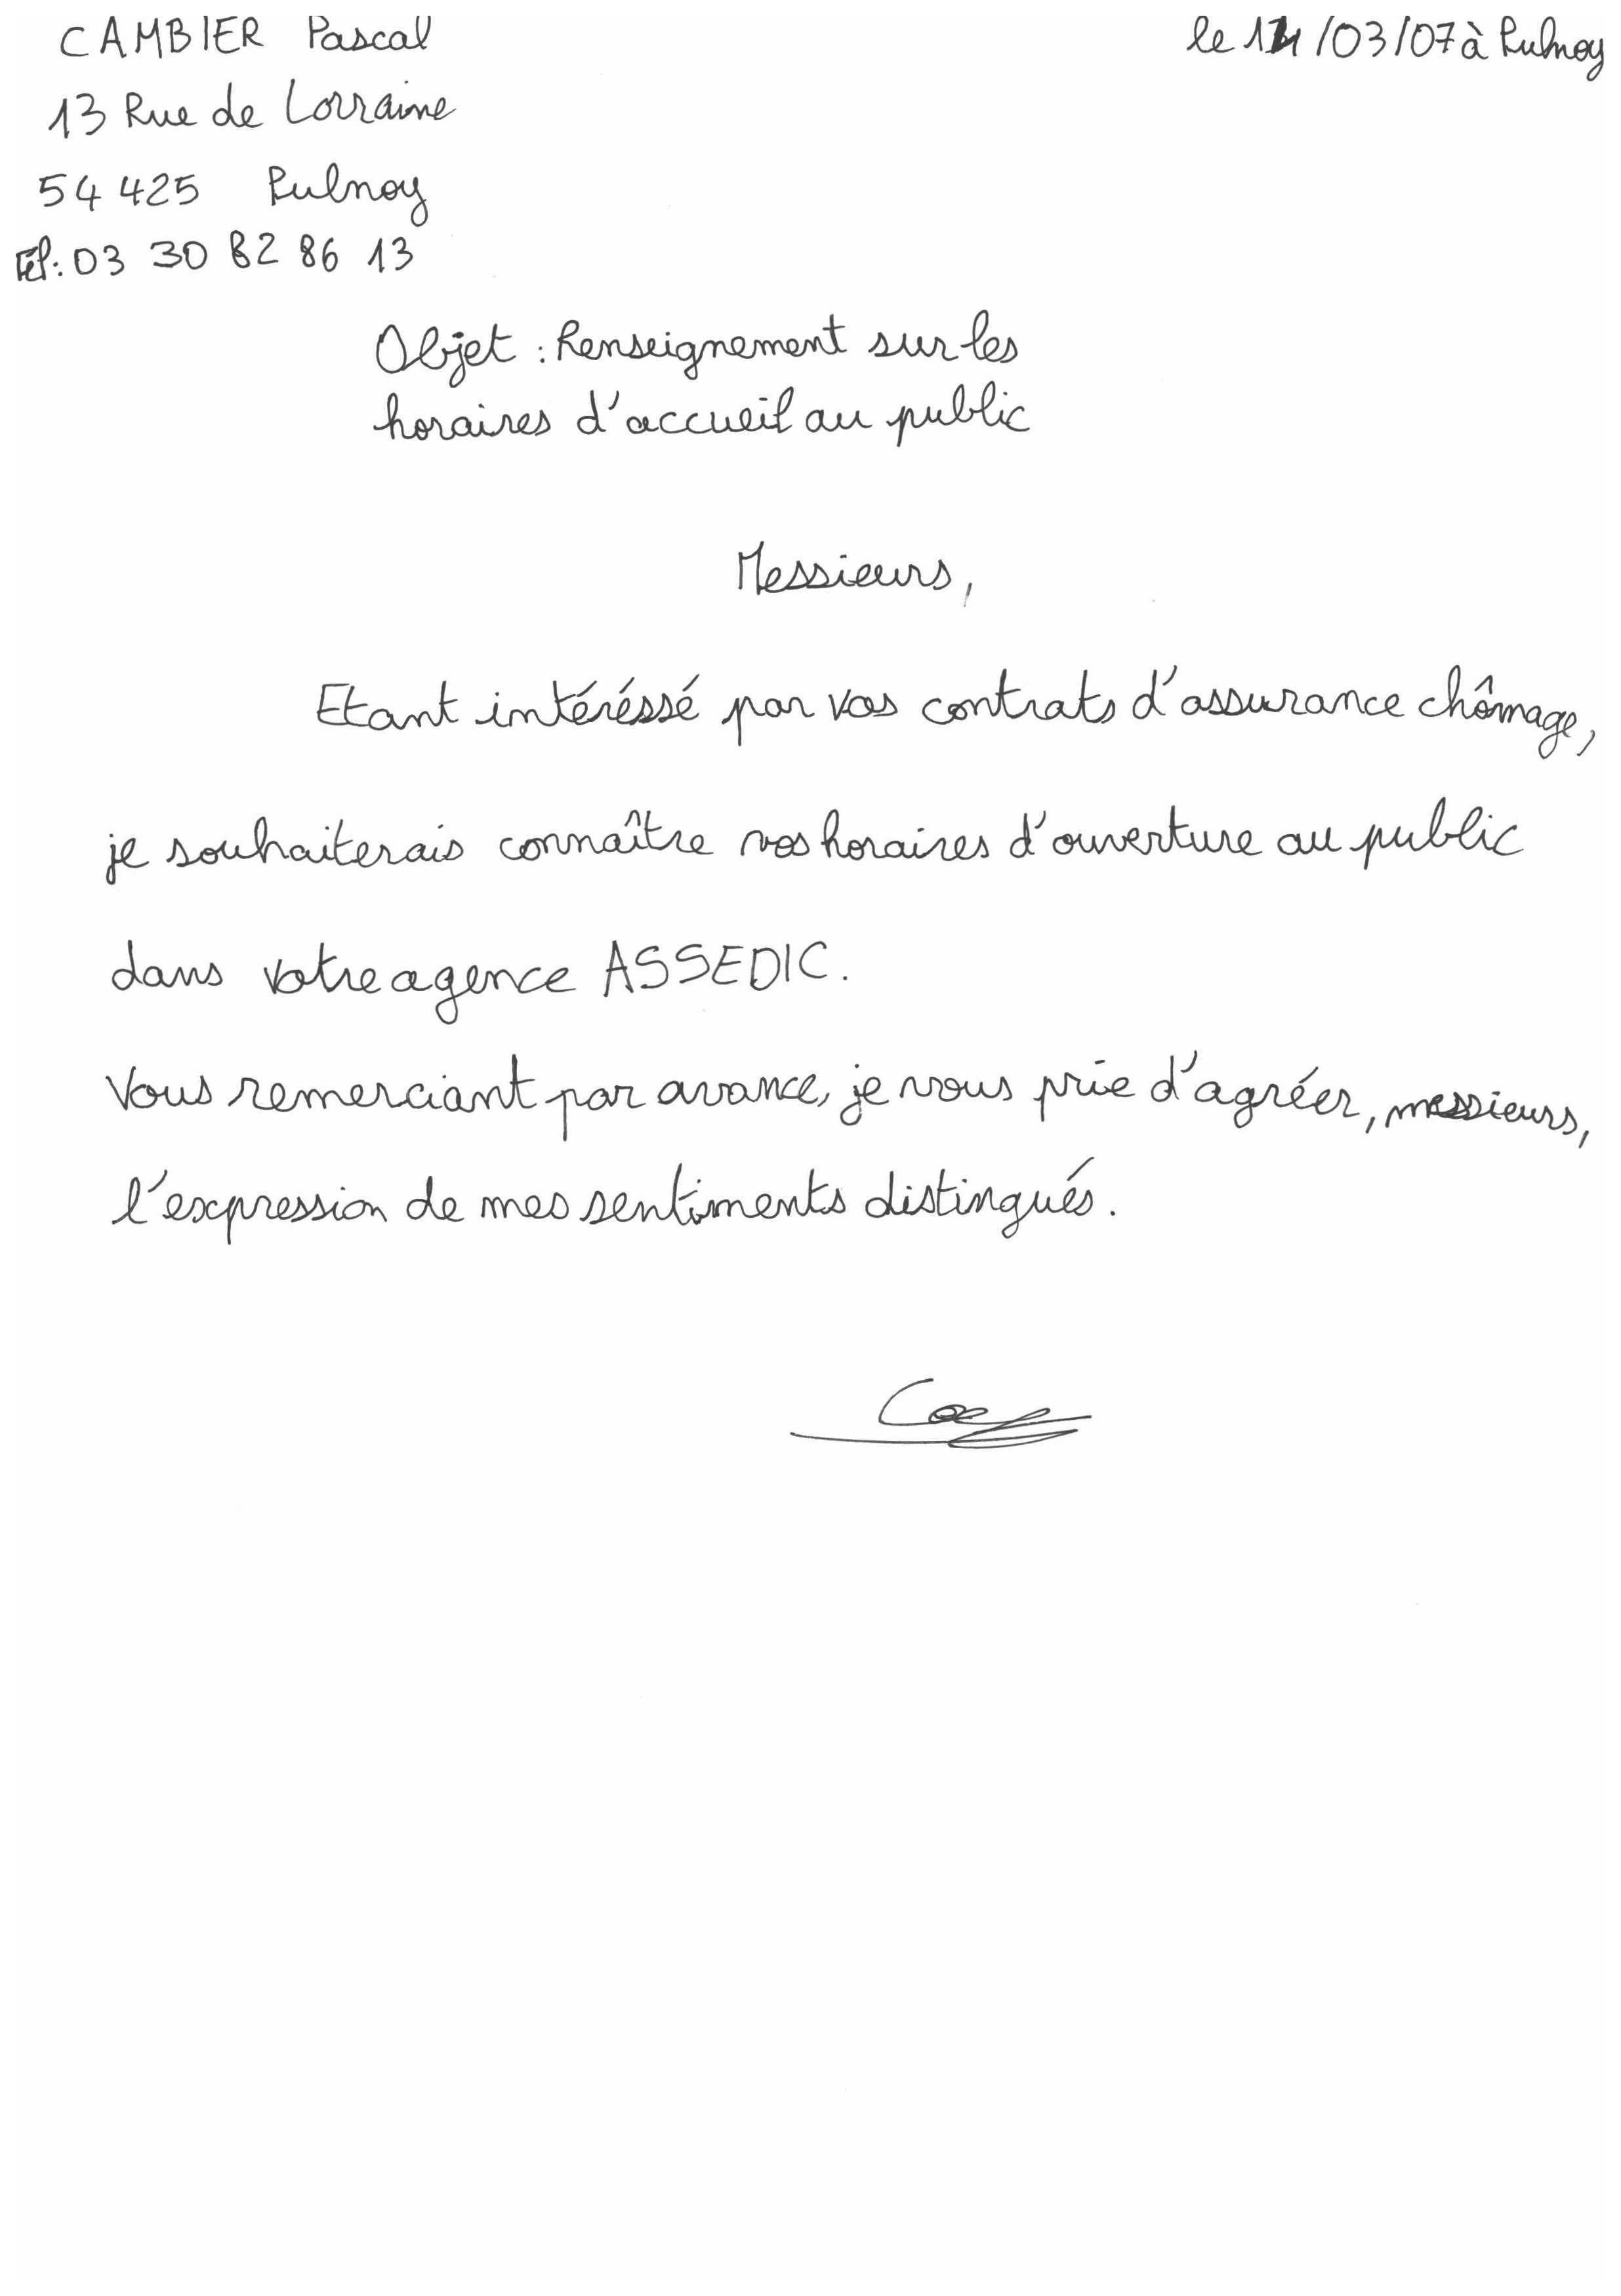 CAMBIER Pascal
le /03/07 à Pulnoy
13 Rue de Lorraine
54 425 Pulnoy
Tél: 03 30 82 86 13
Objet : Renseignement sur les
horaires d'accueil au public
Messieurs,
Etant intéréssé par vos contrats d'assurance chômage,
je souhaiterais connaître vos horaires d'ouverture au public
dans votre agence ASSEDIC.
Vous remerciant par avance, je vous prie d'agréer, messieurs,
l'expression de mes sentiments distingués.